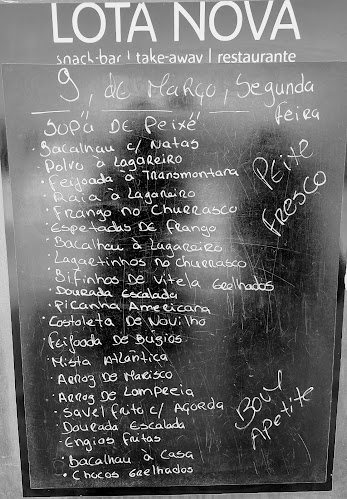 LOTA NOVA
snack-bar | take-away | restaurante
9, de Março, Segunda
feira
"SOPA DE PEIXE"
PEIXE
FRESCO
· Bacalhau c/ Natas
· Polvo à Lagareiro
· Feijoada à Transmontana
· Raia à Lagareiro
· Frango no Churrasco
· Espetadas de Frango
· Bacalhau à Lagareiro
· Lagartinhos no Churrasco
· Bifinhos de Vitela Grelhados
· Dourada Escalada
· Picanha Americana
· Costoleta de Novilho
Feijoada de Búgios
· Mista Atlântica
· Arroz de Marisco
· Arroz de Lampreia
· Savel frito c/ Açorda
· Dourada Escalada
· Engios fritas
· Bacalhau à Casa
· Chocos Grelhados
Bom
Apetite